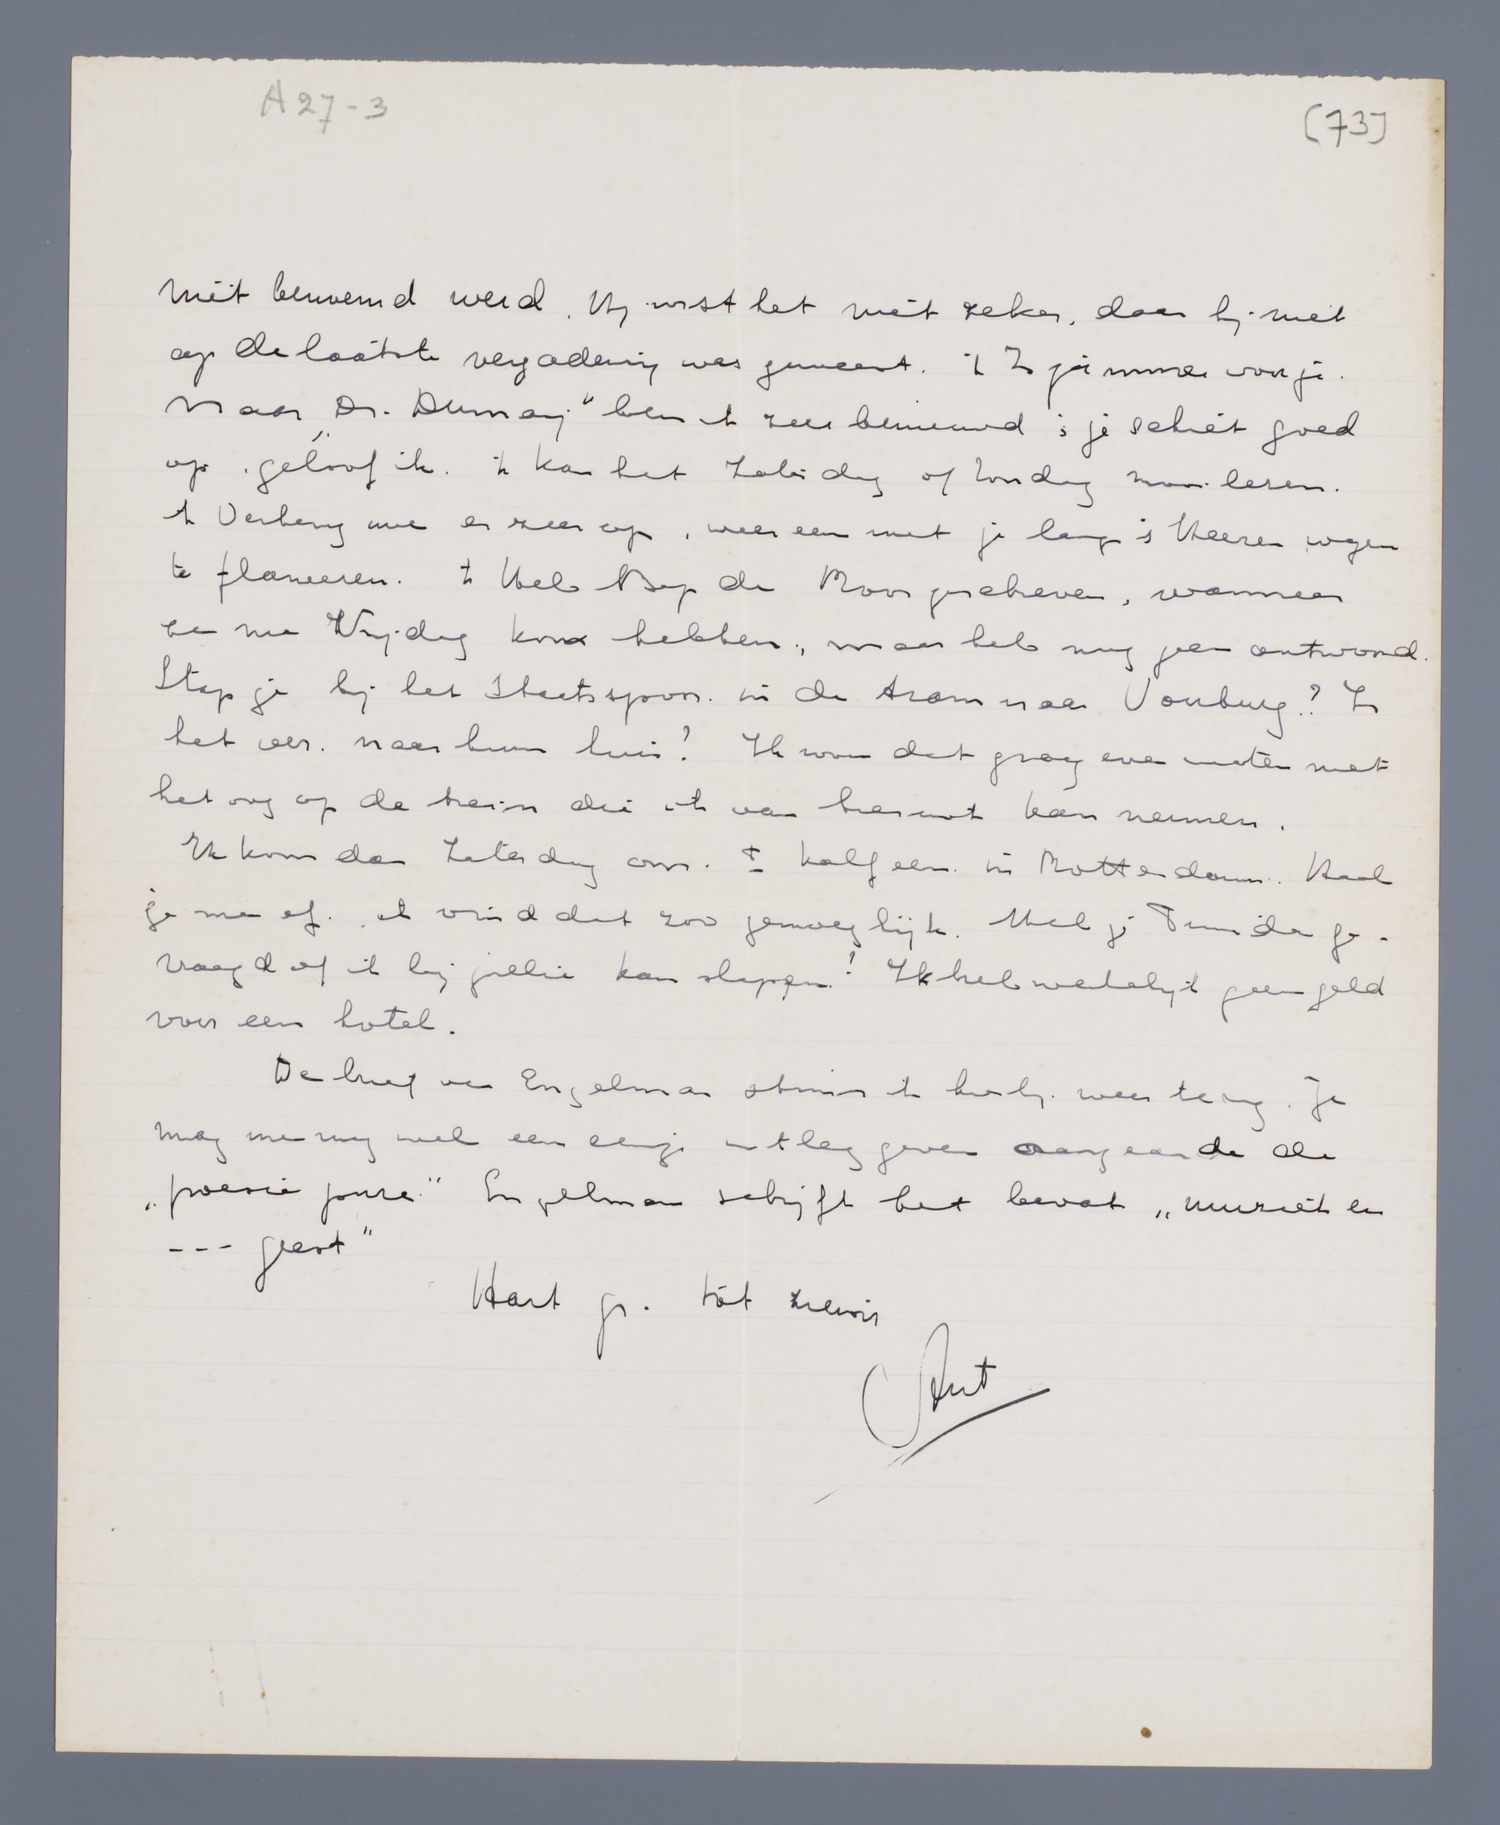 A27-3
[73]
niet benoemd werd. Hij wist het niet zeker, daar hij niet
op de laatste vergadering was geweest. 't Is jammer voor je.
Naar „Dr. Dumay" ben ik zeer benieuwd; je schiet goed
op, geloof ik. Ik kan het Zaterdag of Zondag mooi lezen.
Ik verheug me er zeer op, weer een met je langs Heeren wegen
te flaneeren. Ik heb Bep de Roos geschreven, wanneer
ze me Vrijdag kon hebben, maar heb nog geen antwoord.
Stap je bij het Staatsspoor in de tram naar Voorburg? Is
het ver naar hun huis? Ik wou dat graag even weten met
het oog op de trein die ik van hieruit kan nemen.
Ik kom dan Zaterdag om ± half een in Rotterdam. Haal
je me af. ik vind dat zoo genoegelijk. Heb je Truida ge-
vraagd of ik bij jullie kan slapen? Ik heb wadelijk geen geld
voor een hotel.
De brief van Engelman stuur ik hierbij weer terug. Je
mag me nog wel een eenige uitleg geven aangaande de
„poésie pure." Engelman schrijft het bevat „muziek en
--- geest"
Hart gr. tot ziens
Ant